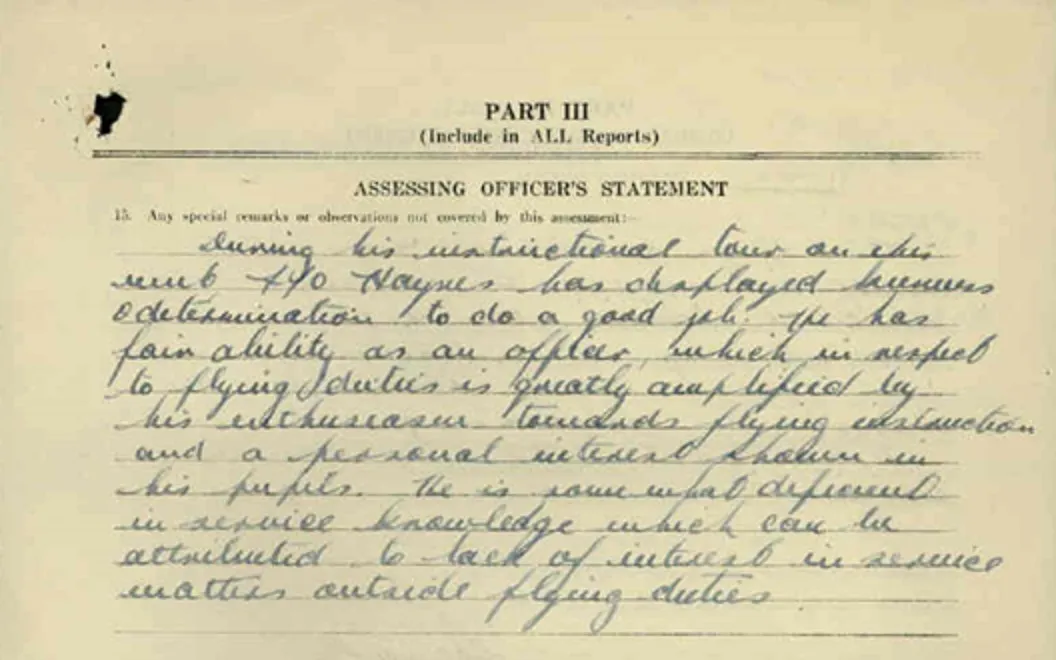 PART III
(Include in ALL Reports)
ASSESSING OFFICER'S STATEMENT
15. Any special remarks or observations not covered by this assessment:—
During his instructional tour on this
unit F/O Haynes has displayed keenness
& determination to do a good job. He has
fair ability as an officer, which in respect
to flying duties is greatly amplified by
his enthusiasm towards flying instruction
and a personal interest shown in
his pupils. He is somewhat deficient
in service knowledge which can be
attributed to lack of interest in service
matters outside flying duties